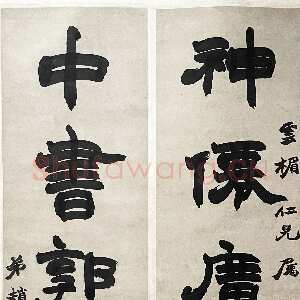 雲楣仁兄屬
神僊廣
中書郭
弟趙